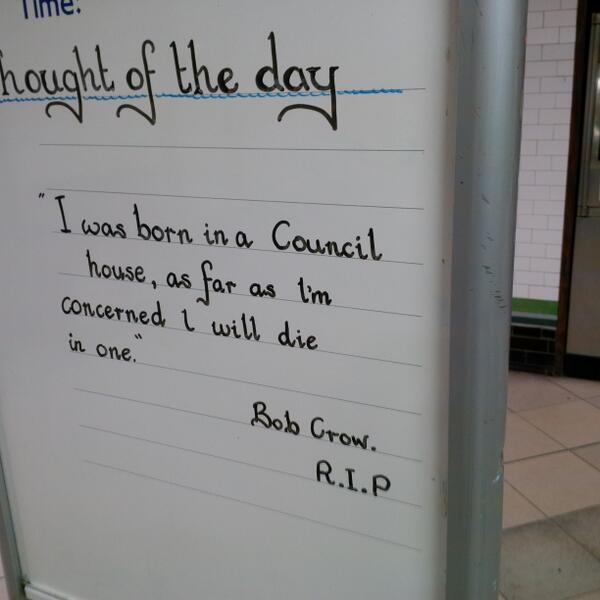 Time:
hought of the day
"I was born in a Council
house, as far as I'm
concerned I will die
in one."
Bob Crow.
R.I.P